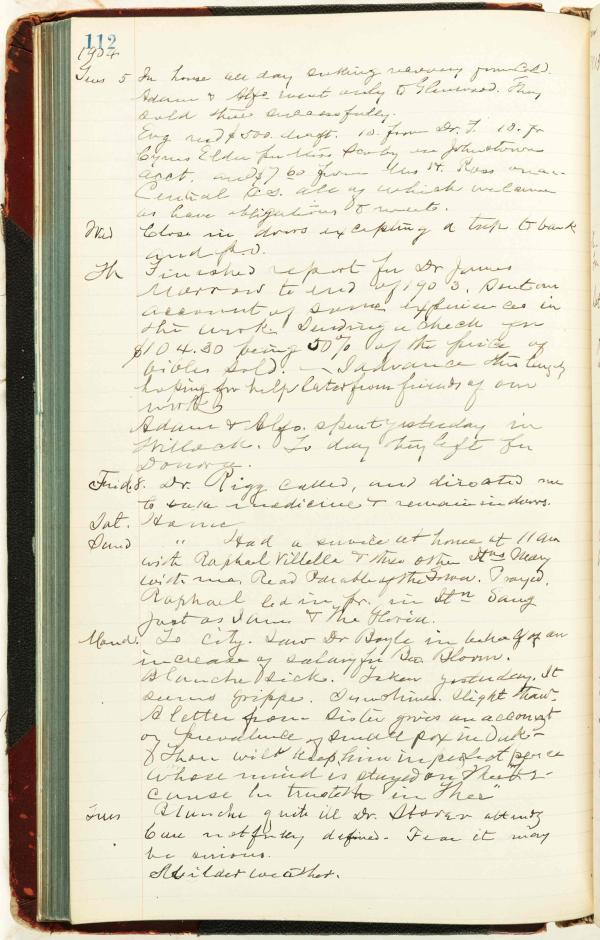 112
1904
Tues 5 In house all day seeking recovery from Cold.
Adam & Alfo went early to Glenwood. They
sold there successfully.
Evg recd $500. draft. 10. from Dr. F. 10. fr
Cyrus Elder per Miss in Johnstown
acct. and $7.60 from Mrs H. Ross on a/c
Central all of which welcome
as have obligations to meet.
Wed Close in doors excepting a trip to bank
and p.o.
Th Finished report for Dr James
Morrow to end of 1903. Sent an
account of some experiences in
the work. Sending a check for
$104.30 being 50% of the price of
bibles sold. — I advance this largely
hoping for help later from friends of our
work
Adam & Alfo. spent yesterday in
Willock. To day they left for
Donora.
Frid. 8. Dr. Rigg called, and directed me
to take medicine & remain indoors.
Sat. Home
Sund " Had a service at home at 11 am
with Raphael Villella & three other Itns Mary
with me. Read Parable of the Sower. Prayed.
Raphael led in pr. in Itn Sang
Just as I am & The Gloria.
Mond. To City. Saw Dr Boyle in behalf of an
increase of salary for Bro Bloom.
Blanche sick. Taken yesterday. It
seems grippe. Slight thaw-
A letter from Sister gives an account
of prevalence of small pox in
"Thou wilt keep him in perfect peace
whose mind is stayed on Thee be-
cause he trusteth in Thee"
Tues Blanche quite ill Dr. attends
Case not fully defined - Fear it may
be serious.
Milder weather.